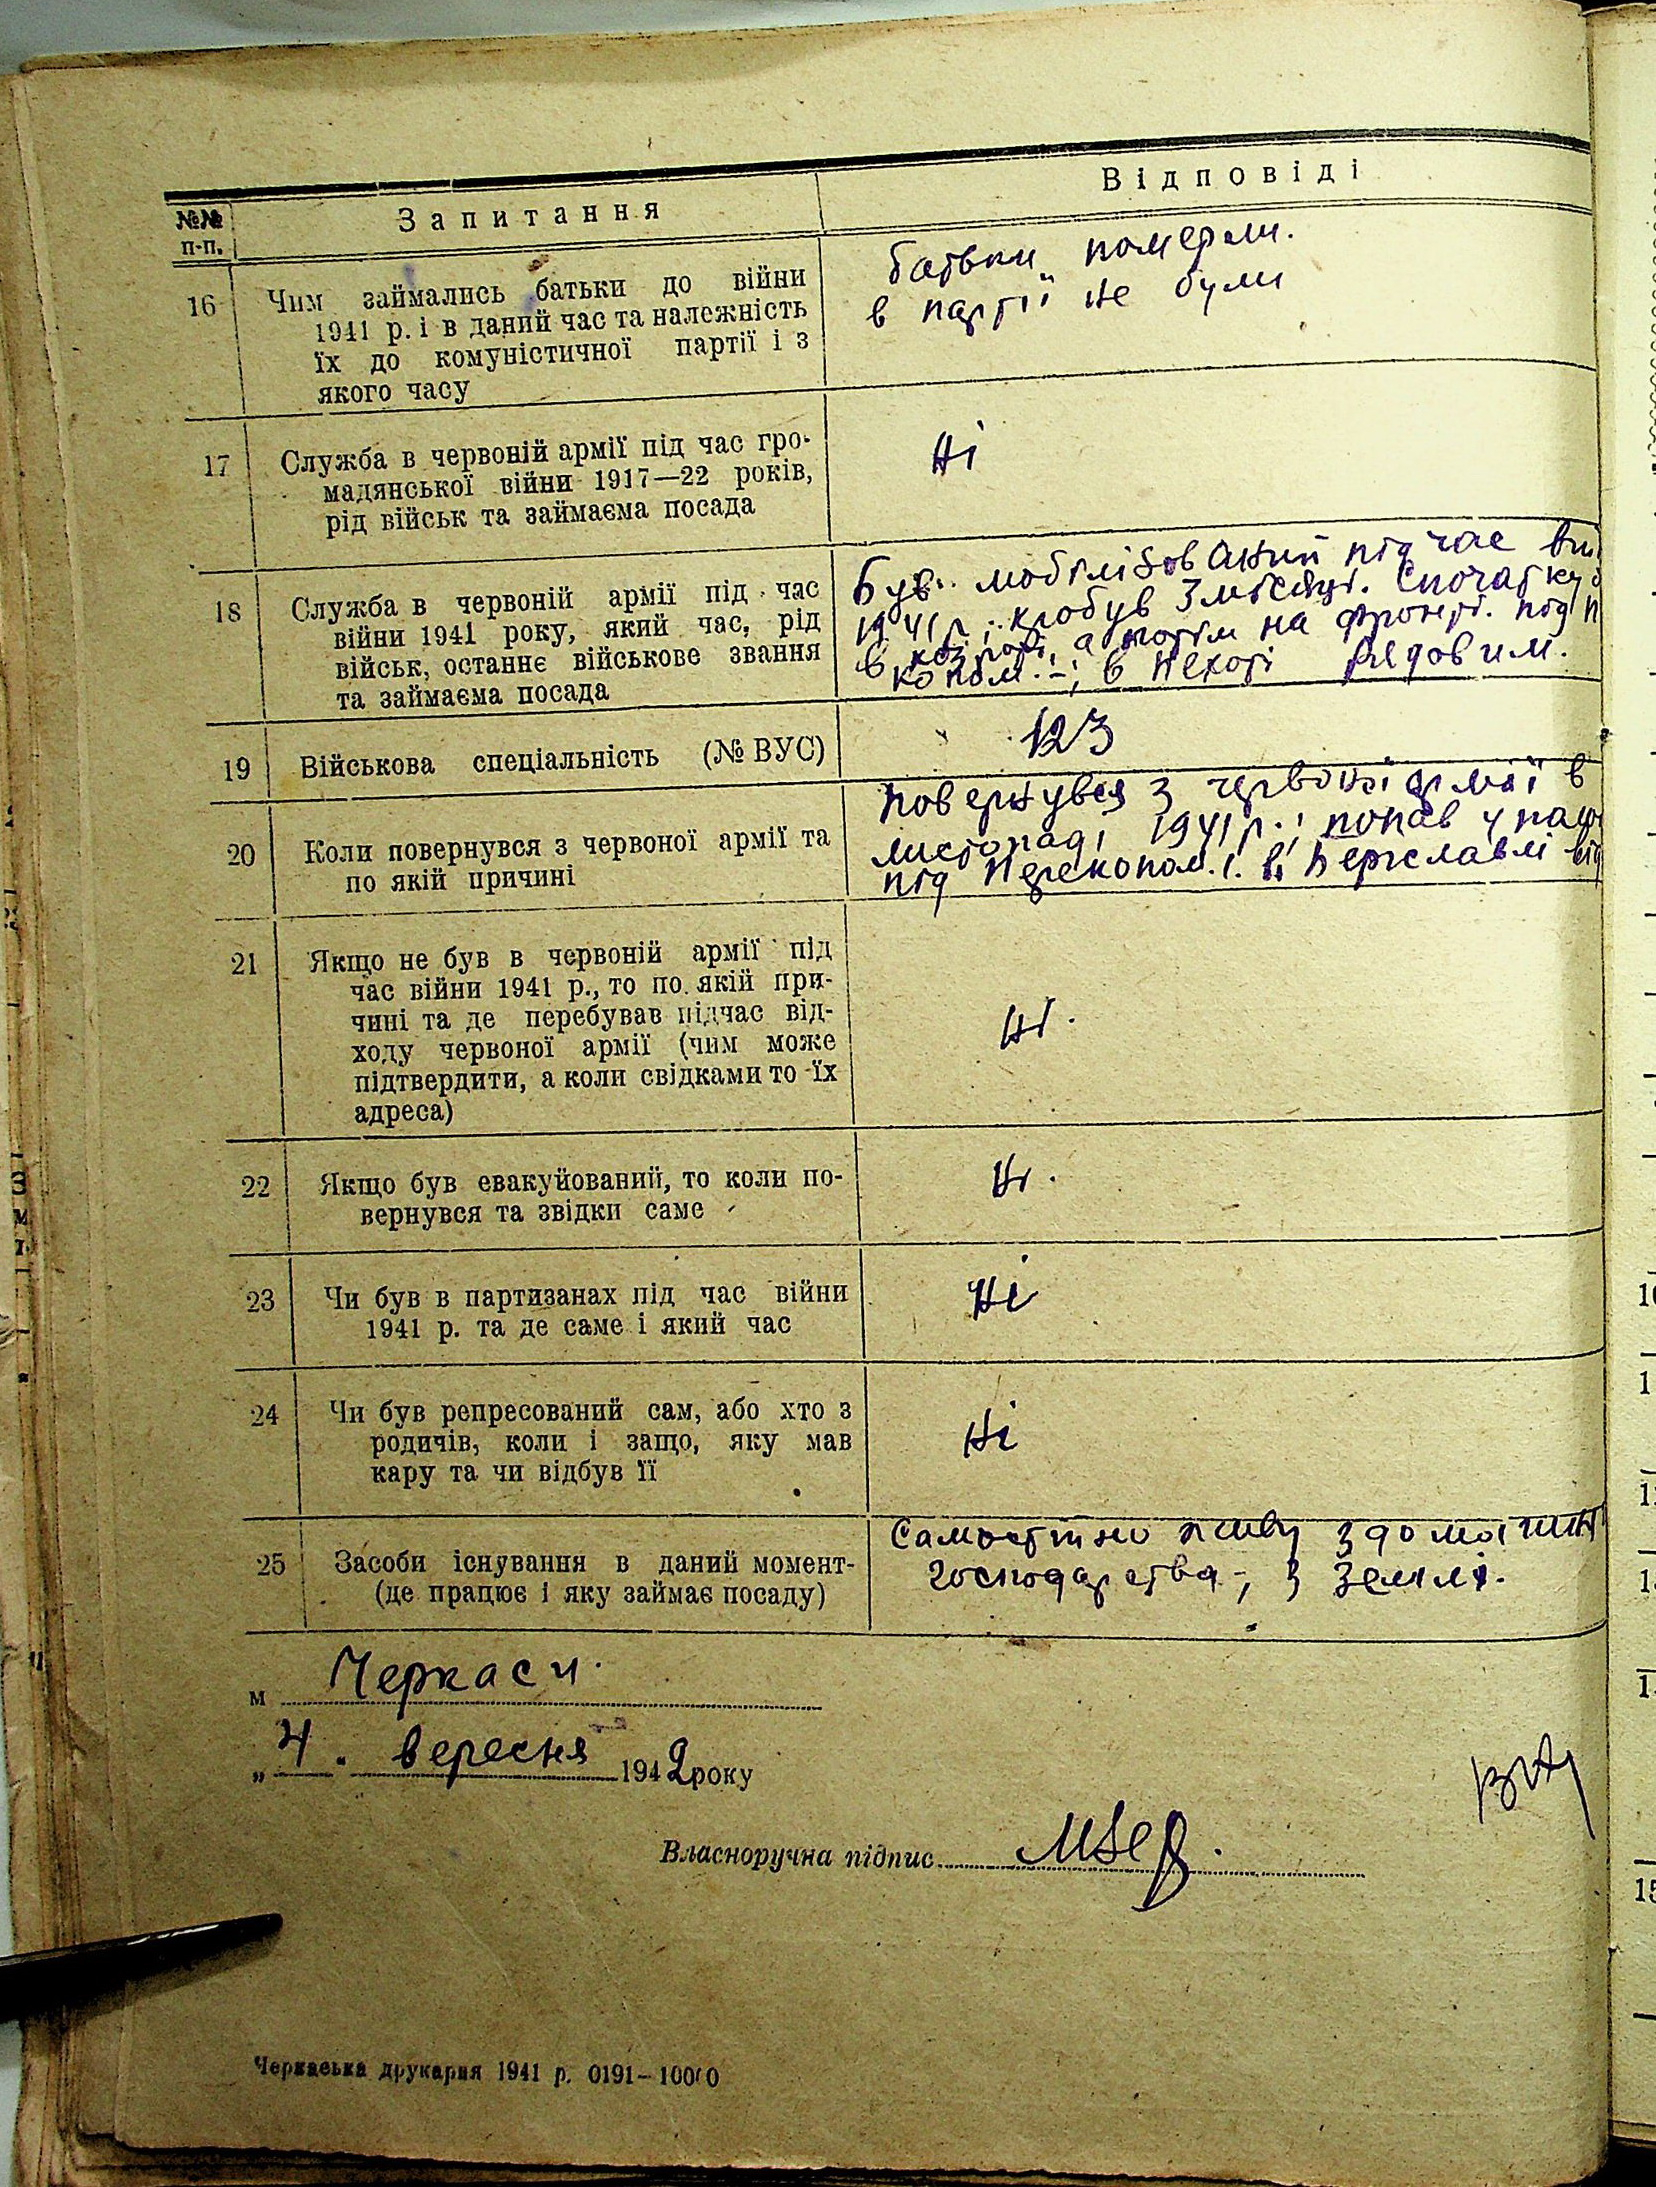 №№ п-п.
Запитання
Відповіді
16
Чим займались батьки до війни
1941 р. і в даний час та належність
їх до комуністичної партії і з
якого часу
батьки померли.
в партії не були
17
Служба в червоній армії під час гро-
мадянської війни 1917—22 років,
рід військ та займаєма посада
Ні
18
Служба в червоній армії під час
війни 1941 року, який час, рід
військ, останнє військове звання
та займаєма посада
Був мобілізований під час
1941 р.; пробув 3 місяці. Спочатку
в а потім на фронті. під
копом.-; в пехоті рядовим.
19
Військова спеціальність (№ ВУС)
123
20
Коли повернувся з червоної армії та
по якій причині
повернувся з червоної армії в
листопаді 1941 р.; попав у
під Перекопом. і. в Бериславлі
21
Якщо не був в червоній армії під
час війни 1941 р., то по якій при-
чині та де перебував підчас від-
ходу червоної армії (чим може
підтвердити, а коли свідками то їх
адреса)
Ні.
22
Якщо був евакуйований, то коли по-
вернувся та звідки саме
Ні.
23
Чи був в партизанах під час війни
1941 р. та де саме і який час
Ні
24
Чи був репресований сам, або хто з
родичів, коли і защо, яку мав
кару та чи відбув її
Ні
25
Засоби існування в даний момент-
(де працює і яку займає посаду)
Самостійно живу з
господарства-; з землі.
м Черкаси.
„4. вересня 1942 року
Власноручна підпис
Черкаська друкарня 1941 р. 0191–10000